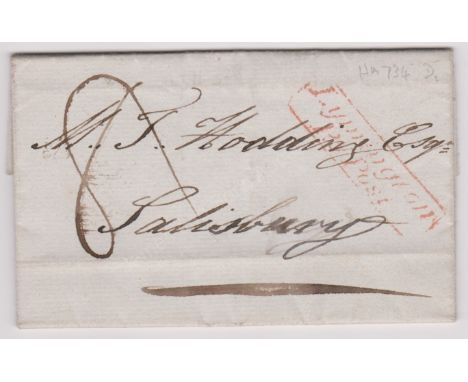 Hn 734
8
M. T. Hodding Esqr
Lymington
Post
Salisbury